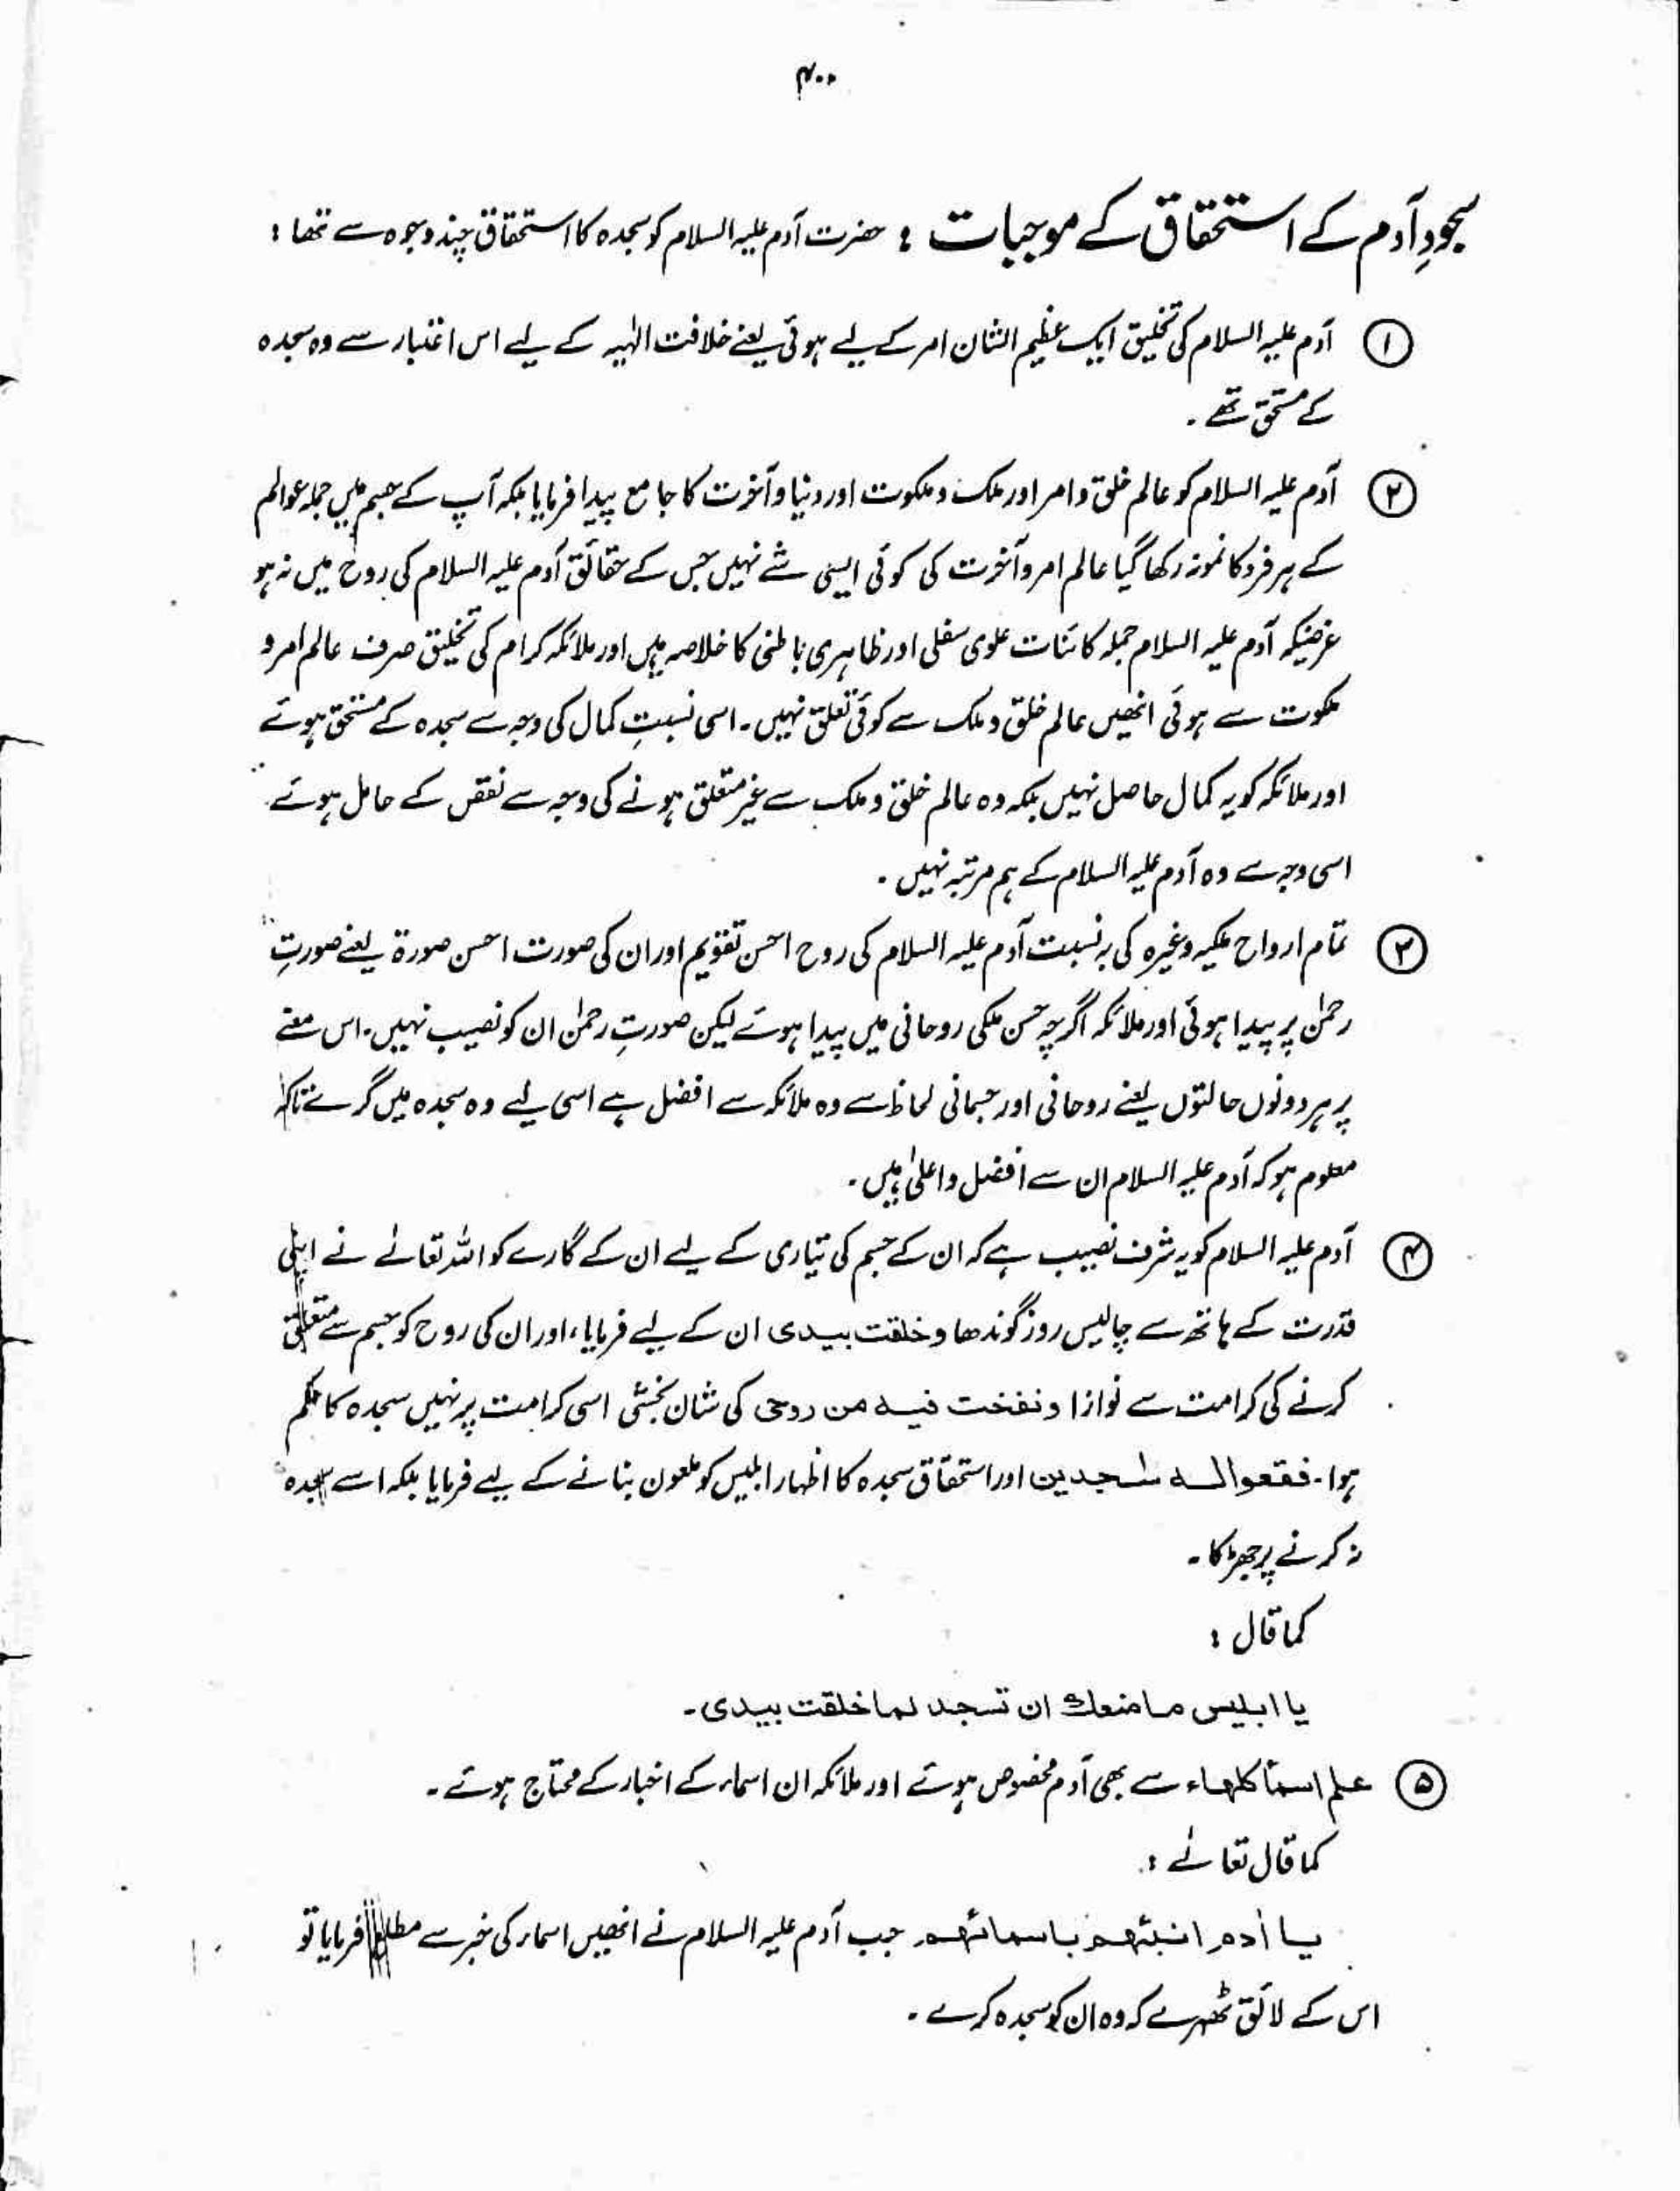 ۴۰۰
سجودِ آدم کے استحقاق کے موجبات : حضرت آدم علیہ السلام کو سجدہ کا استحقاق چند وجوہ سے تھا :
① آدم علیہ السلام کی تخلیق ایک عظیم الشان امر کے لیے ہوئی یعنے خلافت الٰہیہ کے لیے اس اعتبار سے وہ سجدہ
کے مستحق تھے ۔
② آدم علیہ السلام کو عالم خلق و امر اور ملک و ملکوت اور دنیا و آخرت کا جامع پیدا فرمایا بلکہ آپ کے جسم میں جملہ عوالم
کے ہر فرد کا نمونہ رکھا گیا عالم امر و آخرت کی کوئی ایسی شے نہیں جس کے حقائق آدم علیہ السلام کی روح میں نہ ہو
غرضیکہ آدم علیہ السلام جملہ کائنات علوی سفلی اور ظاہری باطنی کا خلاصہ ہیں اور ملائکہ کرام کی تخلیق صرف عالم امر و
ملکوت سے ہوئی انھیں عالم خلق و ملک سے کوئی تعلق نہیں ۔ اسی نسبتِ کمال کی وجہ سے سجدہ کے مستحق ہوئے
اور ملائکہ کو یہ کمال حاصل نہیں بلکہ وہ عالم خلق و ملک سے غیر متعلق ہونے کی وجہ سے نقص کے حامل ہوئے
اسی وجہ سے وہ آدم علیہ السلام کے ہم مرتبہ نہیں ۔
③ تمام ارواح ملکیہ وغیرہ کی بہ نسبت آدم علیہ السلام کی روح احسن تقویم اور ان کی صورت احسن صورۃ یعنے صورتِ
رحمٰن پر پیدا ہوئی اور ملائکہ اگرچہ حسن ملکی روحانی میں پیدا ہوئے لیکن صورتِ رحمٰن ان کو نصیب نہیں ۔ اس معنے
پر ہر دونوں حالتوں یعنے روحانی اور جسمانی لحاظ سے وہ ملائکہ سے افضل ہے اسی لیے وہ سجدہ میں گرے تاکہ
معلوم ہو کہ آدم علیہ السلام ان سے افضل و اعلیٰ ہیں ۔
④ آدم علیہ السلام کو یہ شرف نصیب ہے کہ ان کے جسم کی تیاری کے لیے ان کے گارے کو اللہ تعالٰے نے اپنی
قدرت کے ہاتھ سے چالیس روز گوندھا و خلقت بیدی ان کے لیے فرمایا، اور ان کی روح کو جسم سے متعلق
کرنے کی کرامت سے نوازا و نفخت فیہ من روحی کی شان بخشی اسی کرامت پر نہیں سجدہ کا حکم
ہوا۔ فقعوا لہ سٰجدین اور استحقاق سجدہ کا اظہار ابلیس کو ملعون بنانے کے لیے فرمایا بلکہ اسے سجدہ
نہ کرنے پر جھڑکا ۔
کما قال :
یا ابلیس ما منعك ان تسجد لما خلقت بیدی ۔
⑤ علم اسما کلھاء سے بھی آدم مخصوص ہوئے اور ملائکہ ان اسماء کے اخبار کے محتاج ہوئے ۔
کما قال تعالٰے :
یا اٰدم انبئھم باسمائھم جب آدم علیہ السلام نے انھیں اسماء کی خبر سے مطلع فرمایا تو
اس کے لائق ٹھہرے کہ وہ ان کو سجدہ کرے ۔